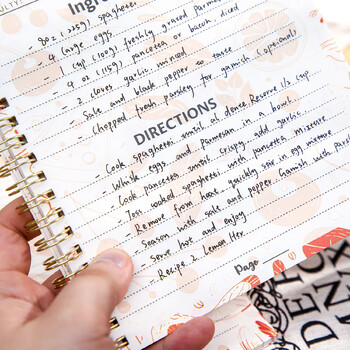 Ingre
- 8oz (225g) spaghetti
- 4 large eggs
- 1 cup (100g) freshly grazed Parme
- 4 oz (115g) pancetta or bacon diced
- 2 cloves garlic, minced
- Salt and black pepper to taste
- Chopped fresh parsley for garnish (optional)
DIRECTIONS
- Cook spaghetti until al dente. Reserve 1/2 cup
- Whisk eggs and Parmesan in a bowl.
- Cook pancetta until crispy, add garlic.
- Toss cooked spaghetti with pancetta mixture
- Remove from heat, quickly stir in egg mixture
- Season with salt and pepper. Garnish with parsl
- Serve hot and enjoy
- Recipe 2 Lemon Her
Page